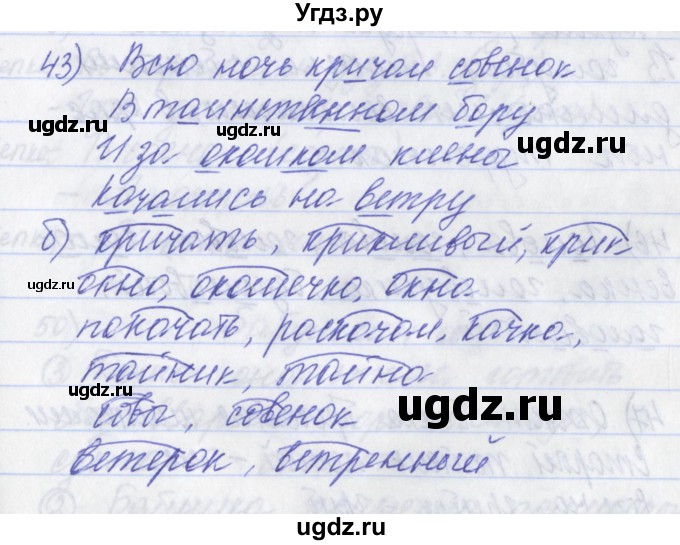 Угдз.ру
43) Всю ночь кричал совенок
В таинственном бору
ugdz.ru
ugdz.ru
ugdz.ru
И за окошком клены
Качались на ветру
б) кричать, крикливый, крик
окно, окошечко, окна
ugdz.ru
покачать, раскачал, качка,
тайник, тайна
ugdz.ru
ugdz.ru
совы, совенок
ветерок, ветренный
ugdz.ru
ugdz.ru